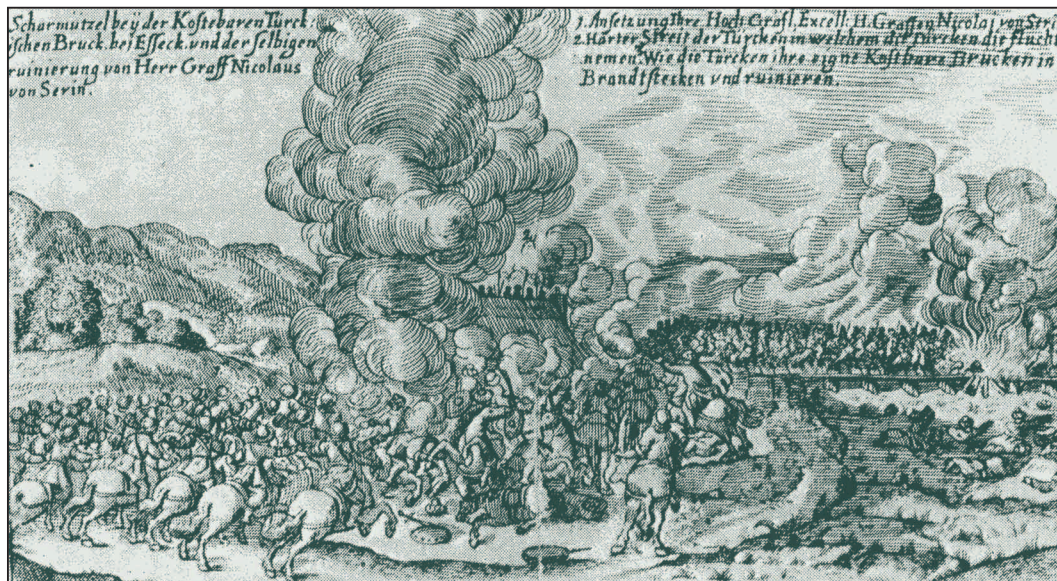 Scharmutzel beÿ der Kostebaren Türck-
ischen Bruck bei Esseck und der selbigen
ruinierung von Herr Graff Nicolaus
von Serin.
1. Ansetzung Ihre Hoch Gräfl. Excell: H. Graffen Nicolaj von Ser
2. Harter Streit der Türcken in welchem die Türcken die flucht
nemen. Wie die Türcken ihre eigne Kostbare Brucken in
Brandt stecken und ruinieren.